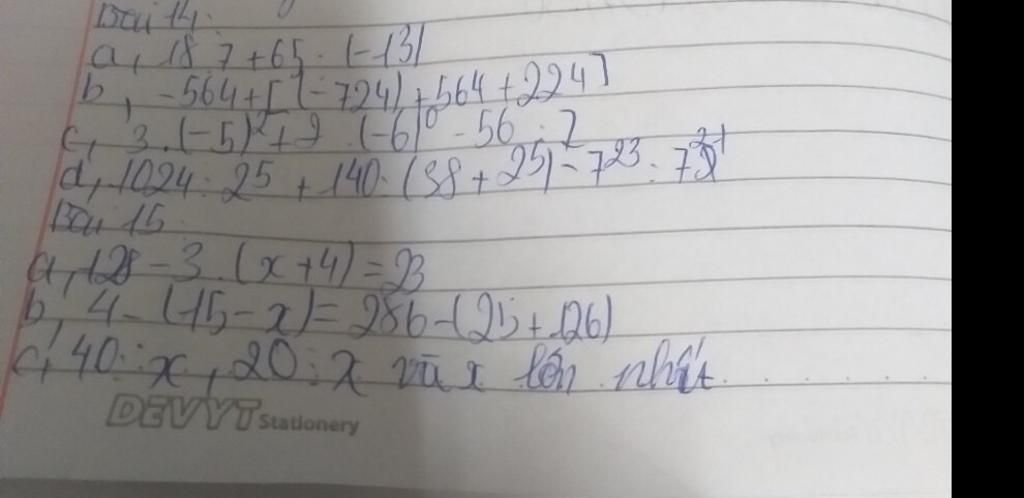 Bài 14:
a, 187 + 65 . (-13)
b, -564 + [(-724) + 564 + 224]
c, 3 . (-5)² + 2 . (-6)⁰ - 56 : 7
d, 1024 : 2⁵ + 140 : (38 + 2⁵) - 7²³ : 7²¹
Bài 15
a, 128 - 3 . (x + 4) = 23
b, 4 - (15 - x) = 286 - (25 + 126)
c, 40 ⋮ x, 20 ⋮ x và x lớn nhất
DEVYT Stationery